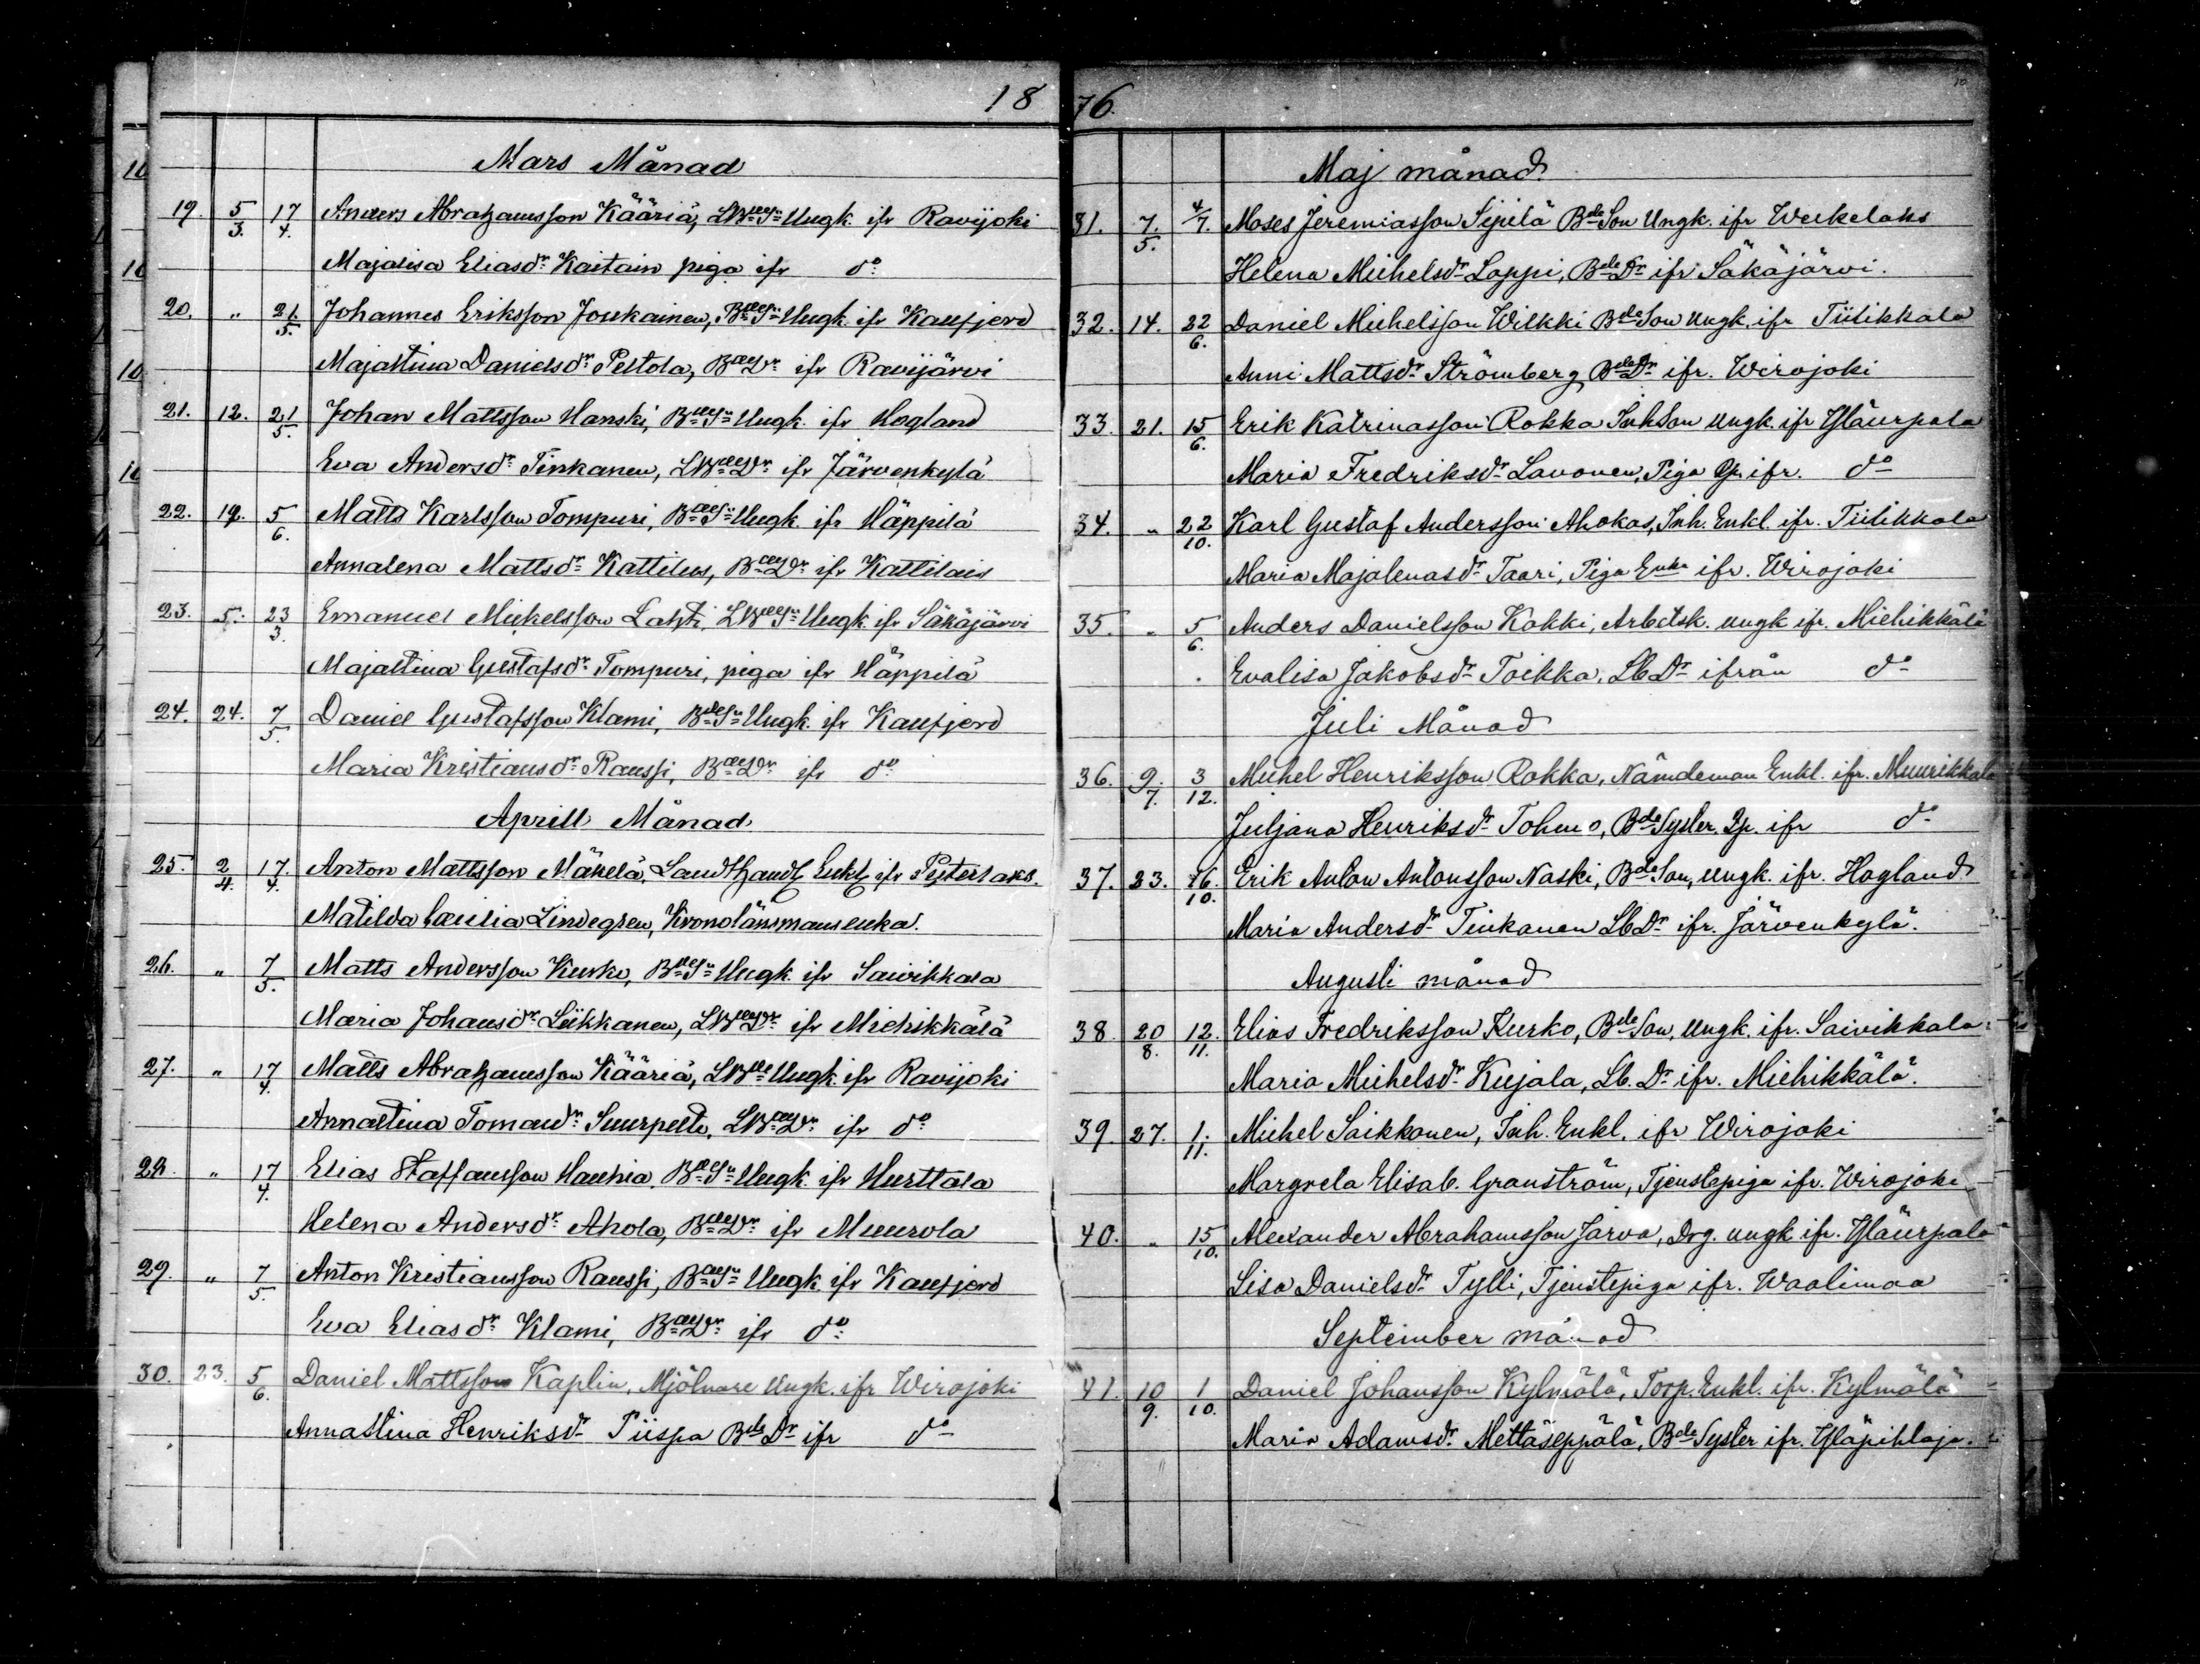 1876.
Mars Månad
19. 5/3. 17/4. Anders Abrahamsson Kääriä, LBdeSn Ungk. ifr Ravijoki
Majalisa Eliasdr Kaitain piga ifr do
20. " 21/5. Johannes Eriksson Joukainen, BdeSn Ungk. ifr Kaufjerd
Majastina Danielsdr Peltola, BdeDr ifr Ravijärvi
21. 12. 21/5. Johan Mattsson Hanski, BdeSn Ungk. ifr Hogland
Eva Andersdr Tinkanen, LBdeDr ifr Järvenkylä
22. 19. 5/6. Matts Karlsson Tompuri, BdeSn Ungk. ifr Häppilä
Annalena Mattsdr Kattilus, BdeDr ifr Kattilais
23. 5. 23/3. Emanuel Mickelsson Lahti, LBdeSn Ungk. ifr Säkäjärvi
Majastina Gustafsdr Tompuri, piga ifr Häppilä
24. 24. 7/5. Daniel Gustafsson Klami, BdeSn Ungk. ifr Kaufjerd
Maria Kristiansdr Raussi, BdeDr ifr do
Aprill Månad
25. 2/4. 17/4. Anton Mattsson Mäkelä, Landthandl Enkl ifr Pyterlaks.
Matilda Cæcilia Lindegren, Kronolänsmansenka.
26. " 7/5. Matts Andersson Kurko, BdeSn Ungk. ifr Saivikkala
Maria Johansdr Liikkanen, LBdeDr ifr Miehikkälä
27. " 17/4. Matts Abrahamsson Kääriä, LBde Ungk. ifr Ravijoki
Annastina Tomasdr Suurpelto, LBdeDr ifr do
28. " 17/4. Elias Staffansson Hauhia, BdeSn Ungk. ifr Hurttala
Helena Andersdr Ahola, BdeDr ifr Muurola
29. " 7/5. Anton Kristiansson Raussi, BdeSn Ungk. ifr Kaufjerd
Eva Eliasdr Klami, BdeDr ifr do
30. 23. 5/6. Daniel Mattsson Kaplin, Mjölnare Ungk. ifr Wirojoki
Annastina Henriksdr Piispa BdeDr ifr do
Maj månad
31. 7/5. 4/7. Moses Jeremiasson Sipilä BdeSon Ungk. ifr Weckelaks
Helena Michelsdr Loppi, BdeDr ifr Säkäjärvi.
32. 14. 22/6. Daniel Michelsson Wilkki BdeSon Ungk. ifr Tiilikkala
Anni Mattsdr Strömberg, BdeDr ifr. Wirojoki
33. 21. 15/6. Erik Katrinasson Rokka InhSon Ungk. ifr Yläurpala
Maria Fredriksdr Lavonen, Piga Qp. ifr. do
34. " 22/10. Karl Gustaf Andersson Ahokas, Inh. Enkl. ifr. Tiilikkala
Maria Majalenasdr Taari, Piga Enka ifr. Wirojoki
35. " 5/6. Anders Danielsson Kokki, Arbetsk. ungk ifr. Miehikkälä
Evalisa Jakobsdr Toikka, LbDr ifrån do
Juli Månad
36. 9/7. 3/12. Michel Henriksson Rokka, Nämdeman Enkl. ifr. Muurikkala
Juljana Henriksdr Tohmo, BdeSyster. Qp. ifr do
37. 23. 16/10. Erik Anton Antonsson Naski, BdeSon, ungk. ifr. Hogland
Maria Andersdr Tinkanen LbDr ifr. Järvenkylä.
Augusti månad
38. 20/8. 12/11. Elias Fredriksson Kurko, BdeSon, ungk. ifr. Saivikkala
Maria Michelsdr Kujala, Lb. Dr ifr. Miehikkälä.
39. 27. 1/11. Michel Saikkonen, Inh. Enkl. ifr Wirojoki
Margreta Elisab. Granström, Tjenstepiga ifr. Wirojoki
40. " 15/10. Alexander Abrahamsson Järvo, Drg. ungk ifr. Yläurpala
Lisa Danielsdr Tylli, Tjenstepiga ifr. Waalimaa
September månad
41. 10/9. 1/10. Daniel Johansson Kylmälä, Torp. Enkl. ifr. Kylmälä
Maria Adamsdr Mettäseppälä, BdeSyster ifr. Yläpihlaja.